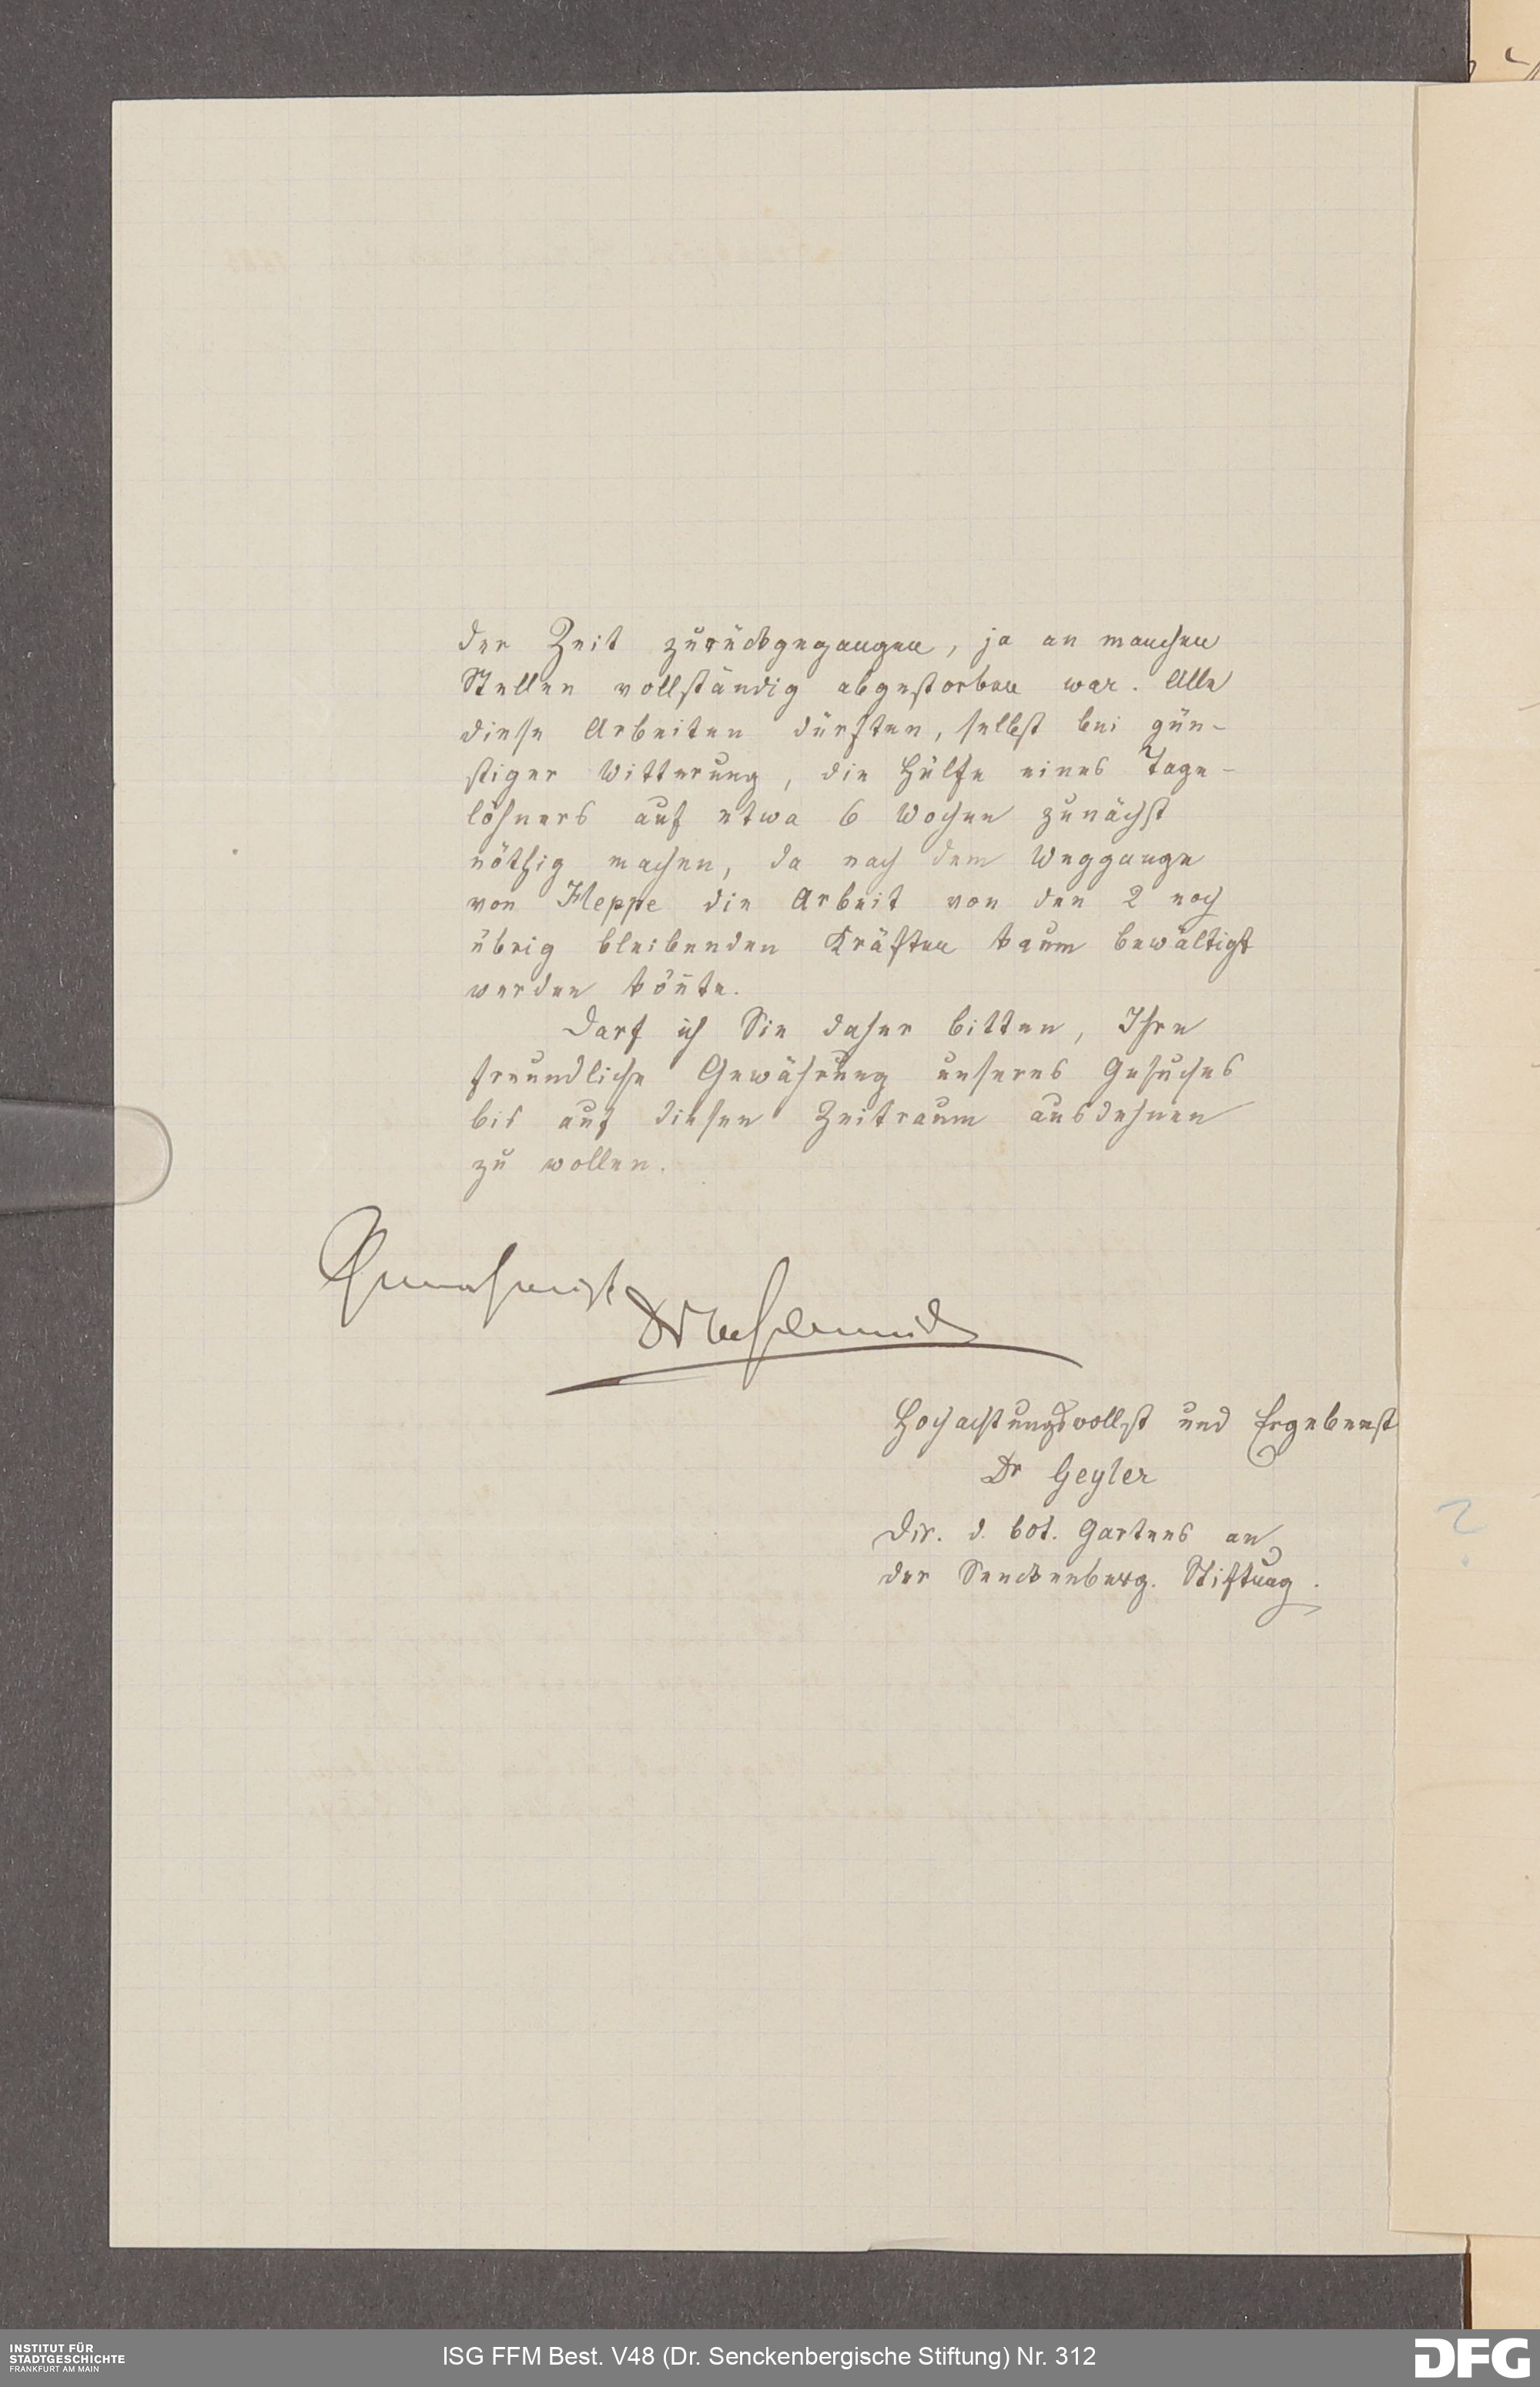 der Zeit zurückgegangen, ja an manchen
Stellen vollständig abgestorben war. Alle
diese Arbeiten dürften, selbst bei gün-
stiger Witterung, die Hülfe eines Tage-
löhners auf etwa 6 Wochen zunächst
nöthig machen, da nach dem Weggange
von Fleppe die Arbeit von den 2 noch
übrig bleibenden Kräften kaum bewältigt
werden kön̄te.
Darf ich Sie daher bitten, Ihre
freundliche Gewährung unseres Gesuches
bis auf diesen Zeitraum ausdehnen
zu wollen.
Genehmigt
Dr
Hochachtungsvollst und Ergebenst
Dr Geyler
Dir. d. bot. Gartens an
der Senckenberg. Stiftung.
INSTITUT FÜR
STADTGESCHICHTE
FRANKFURT AM MAIN
ISG FFM Best. V48 (Dr. Senckenbergische Stiftung) Nr. 312
DFG